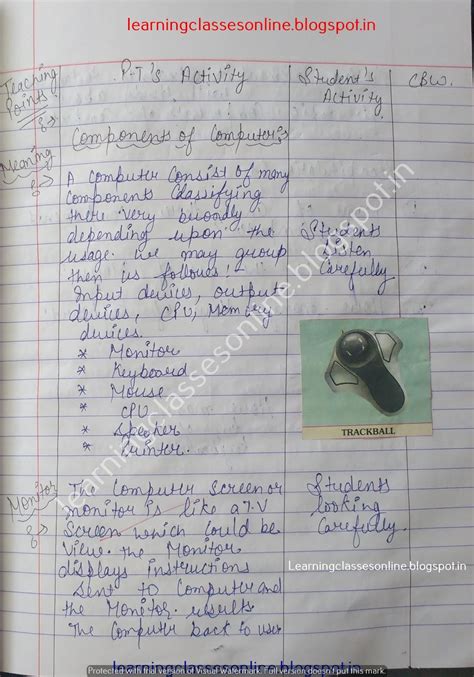 learningclassesonline.blogspot.in
Teaching Points :->
P.T.'s Activity
Student's Activity
C.B.W.
Components of Computer's
Meaning :->
A computer consist of many
components classifying
there very broadly
depending upon the
usage. we may group
then us follows:
Input devices, output
devices, CPU, Memory
devices.
* Monitor
* Keyboard
* Mouse
* CPU
* Speaker
* Printer.
Students
listen
Carefully
TRACKBALL
Monitor :->
The Computer Screen or
monitor is like a T.V
Screen which could be
View. the Monitor
displays instructions
sent to Computer and
the Monitor results
The Computer back to user
Students
looking
Carefully.
learningclassesonline.blogspot.in
Learningclassesonline.blogspot.in
learningclassesonline.blogspot.in
Protected with trial version of Visual Watermark. Full version doesn't put this mark.